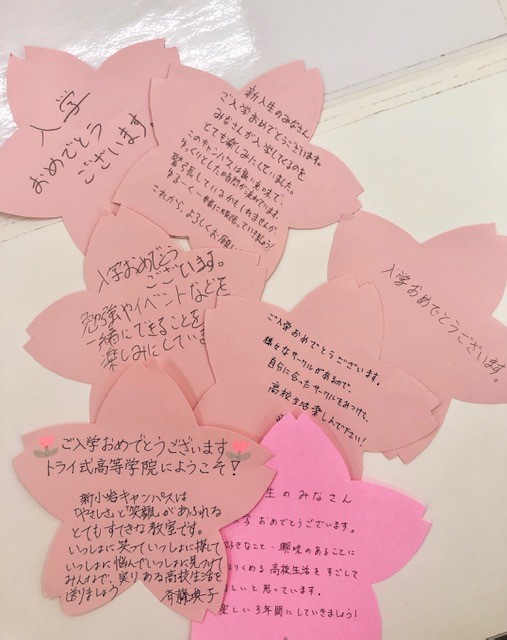 入学
おめでとう
ございます。
新入生のみなさん
ご入学おめでとうございます。
みなさんが入学してくるのを
とても楽しみにしていました。
このキャンパスは良い意味で、
ゆっくりとした時間が流れています。
緊張しているかもしれませんが、
ゆる〜く、一緒に頑張っていきましょう!
これから、よろしくお願い
入学おめでとう
ございます。
勉強やイベントなどを
一緒にできることを
楽しみにしていま
入学おめでとうございます。
ご入学おめでとうございます。
様々なサークルがあるので、
自分に合ったサークルをみつけて、
高校生活楽しんで下さい!
ご入学おめでとうございます
トライ式高等学院にようこそ!
新小岩キャンパスは
"やさしさと笑顔"があふれる
とてもすてきな教室です。
いっしょに笑っていっしょに探して
いっしょに悩んでいっしょに見つけて
みんなで、実りある高校生活を
送りましょう 斉藤映子
生のみなさん
学おめでとうございます。
好きなこと・興味のあることに
りくめる高校生活をすごして
しいと思っています。
楽しい3年間にしていきましょう!